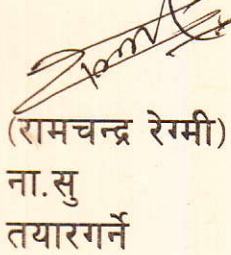 (रामचन्द्र रेग्मी)
ना.सु
तयारगर्ने